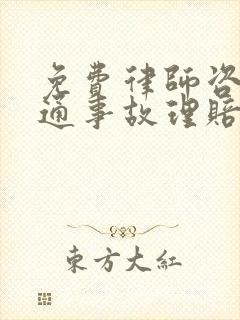 免費律師咨
通事故理賠
東方大紅